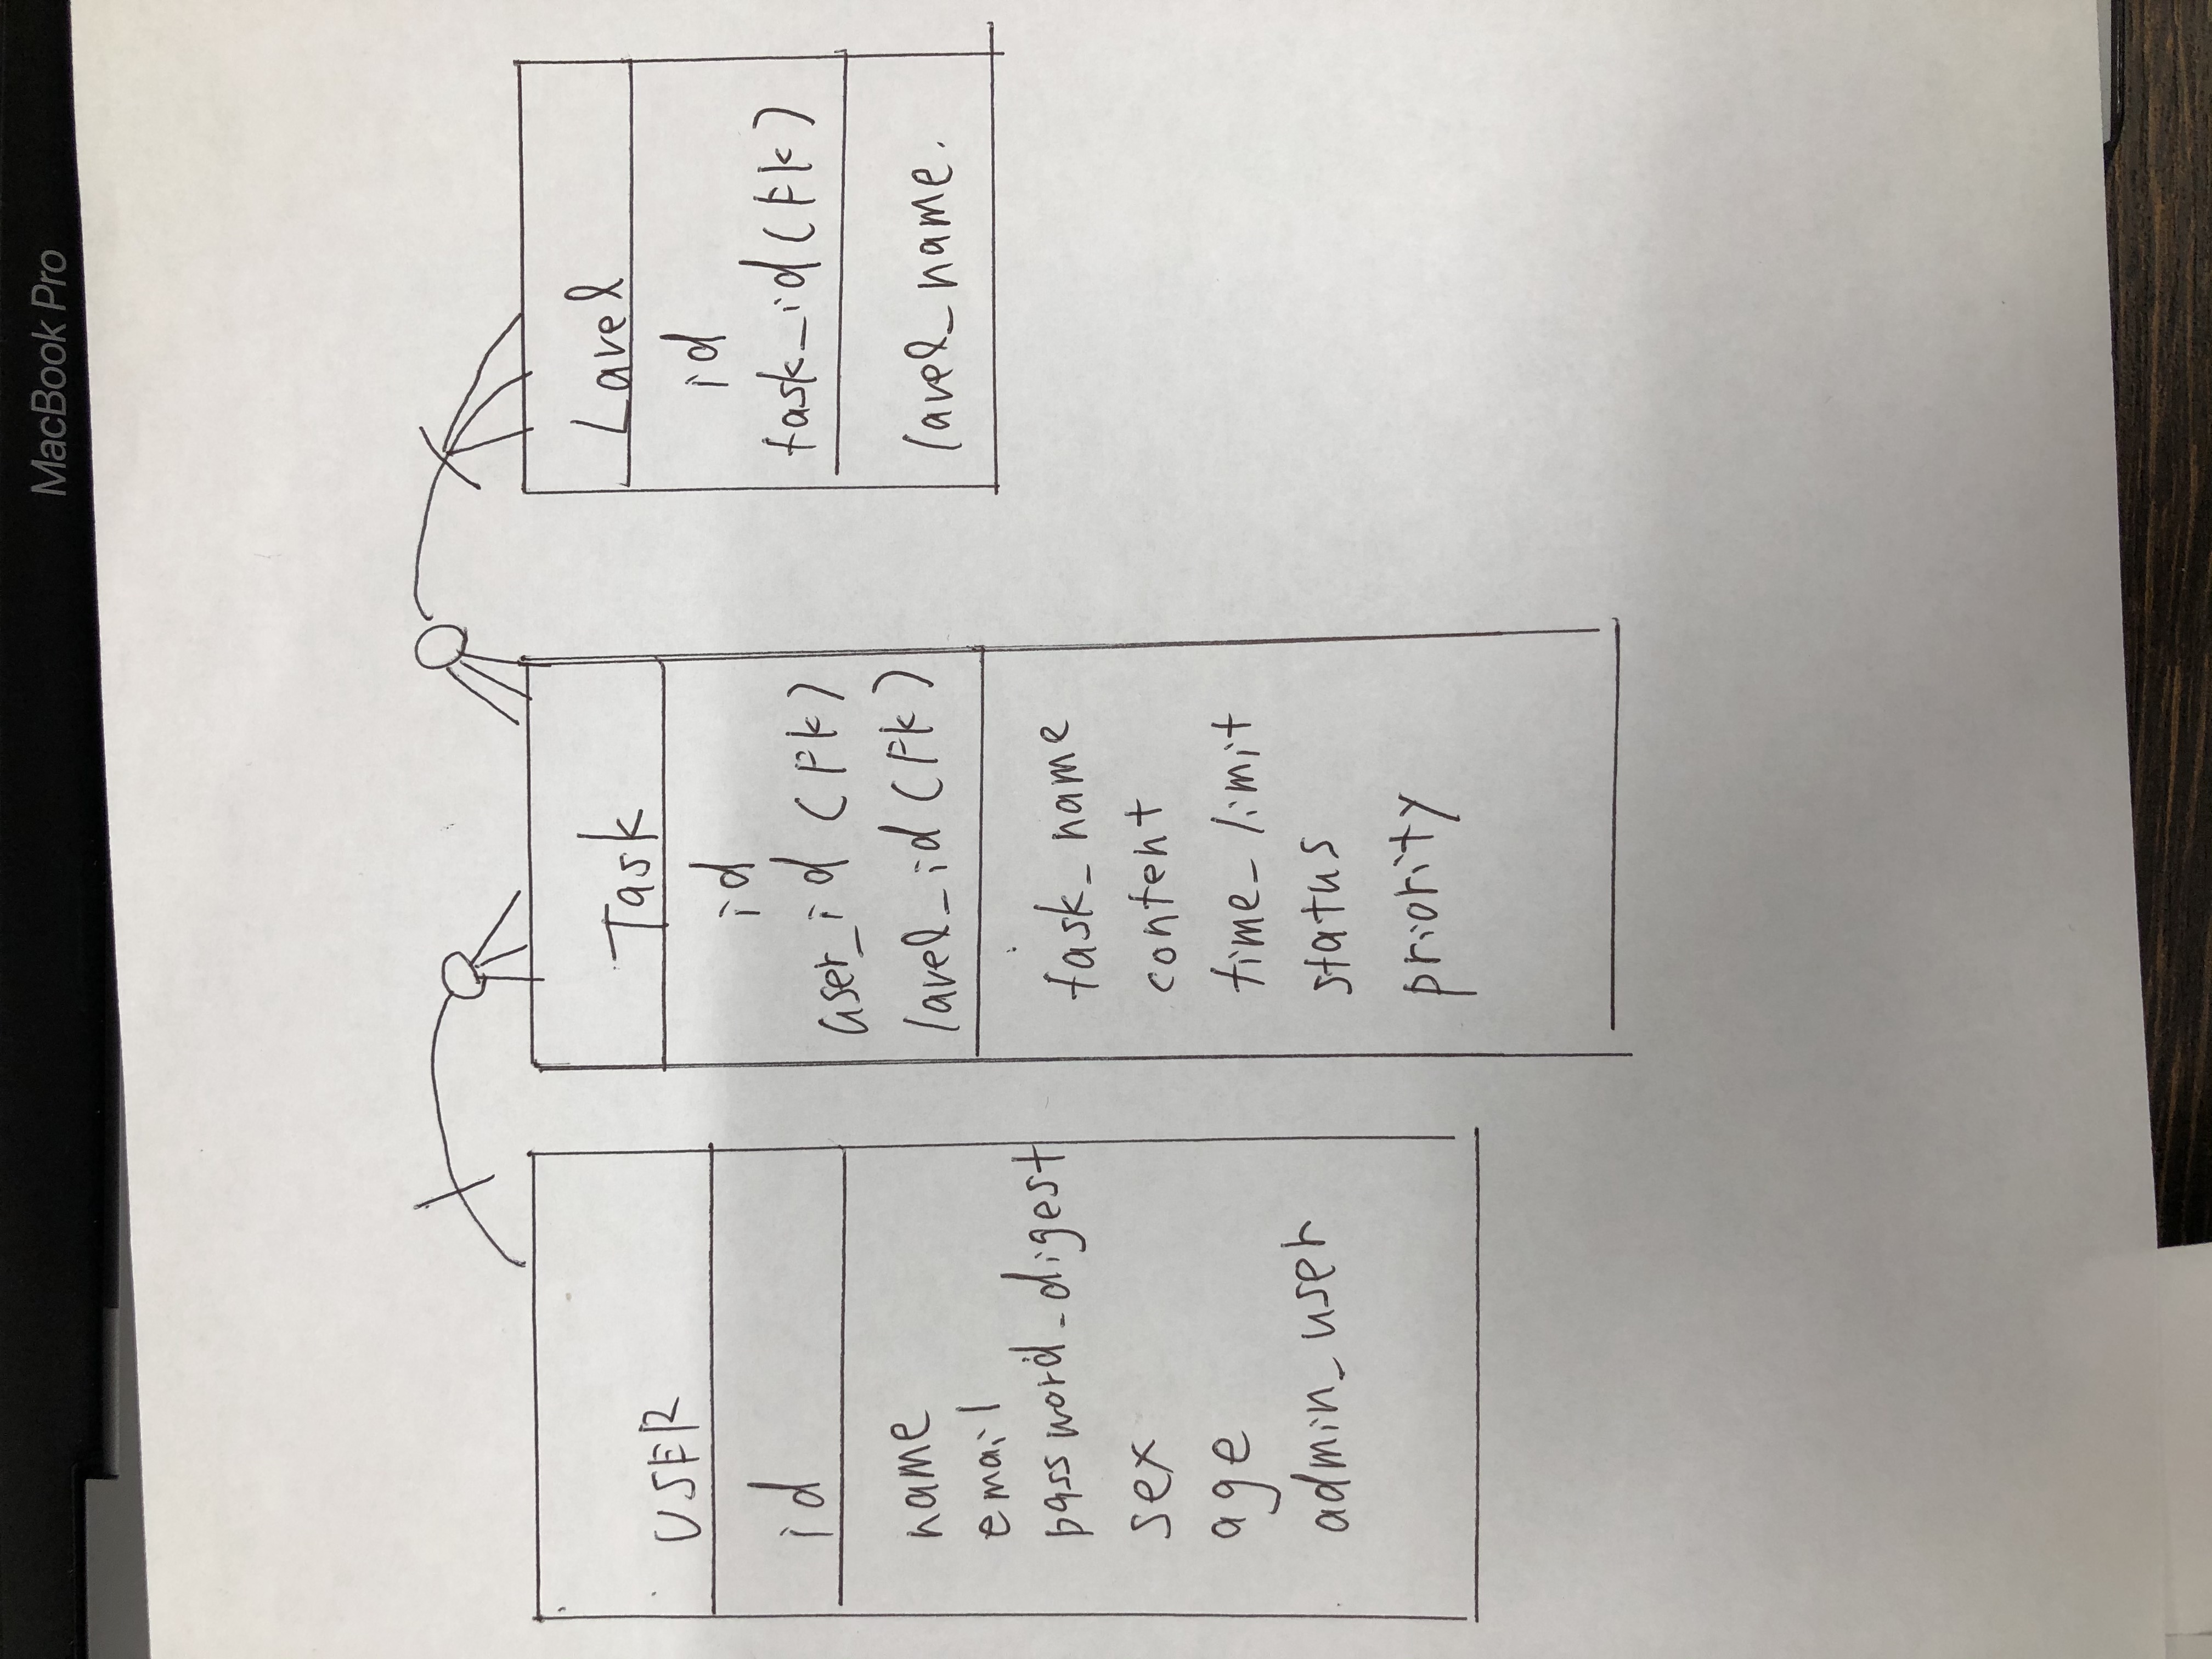 MacBook Pro
USER
id
name
email
password_digest
sex
age
admin_user
Task
id
user_id (FK)
lavel_id (FK)
task_name
content
time_limit
status
priority
Lavel
id
task_id (FK)
lavel_name.